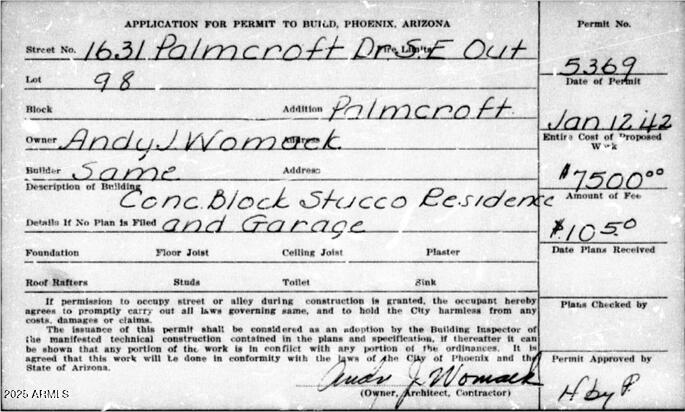 APPLICATION FOR PERMIT TO BUILD, PHOENIX, ARIZONA
Street No. 1631 Palmcroft Dr. S.E Fire Limits Out
Lot 98
Block Addition Palmcroft.
Owner Andy J. Womack Address
Builder Same Address
Description of Building Conc. Block Stucco Residence
Details If No Plan is Filed and Garage
Foundation Floor Joist Ceiling Joist Plaster
Roof Rafters Studs Toilet Sink
If permission to occupy street or alley during construction is granted, the occupant hereby
agrees to promptly carry out all laws governing same, and to hold the City harmless from any
costs, damages or claims.
The issuance of this permit shall be considered as an adoption by the Building Inspector of
the manifested technical construction contained in the plans and specification, if thereafter it can
be shown that any portion of the work is in conflict with any portion of the ordinances. It is
agreed that this work will be done in conformity with the laws of the City of Phoenix and the
State of Arizona.
Andy J. Womack
(Owner, Architect, Contractor)
Permit No.
5369
Date of Permit
Jan 12 42
Entire Cost of Proposed
Work
$7500.00
Amount of Fee
$10.50
Date Plans Received
Plans Checked by
Permit Approved by
2025 ARMLS